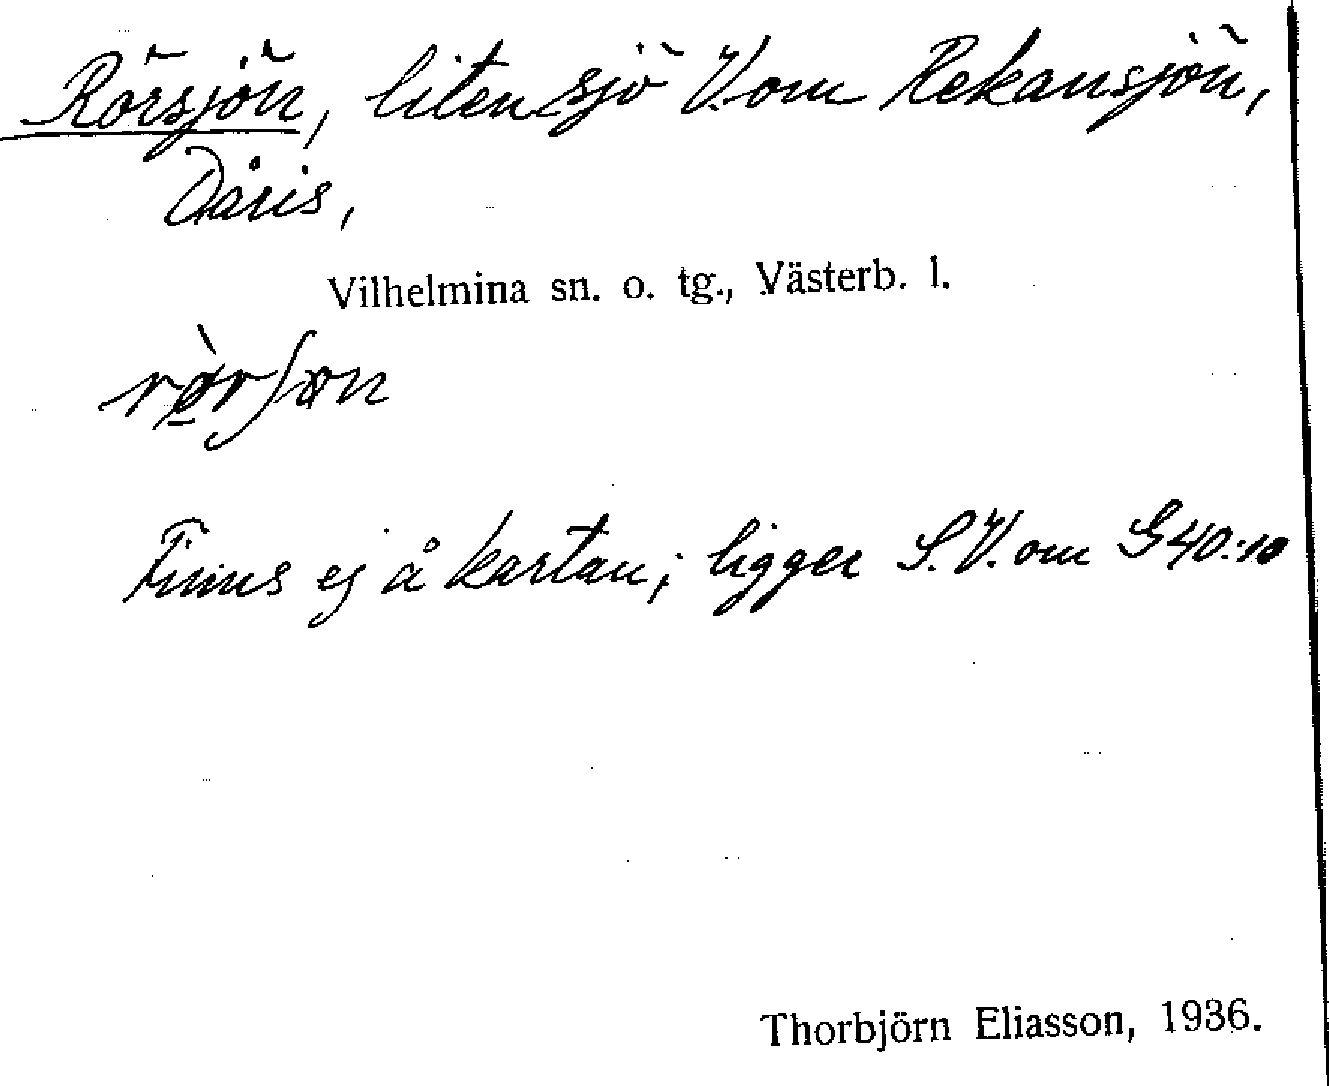 Rörsjön, liten sjö V. om Rekansjön,
Dåris,
Vilhelmina sn. o. tg., Västerb. l.
rø̀rʃøn
Finns ej å kartan; ligger S.V. om G40:10
Thorbjörn Eliasson, 1936.